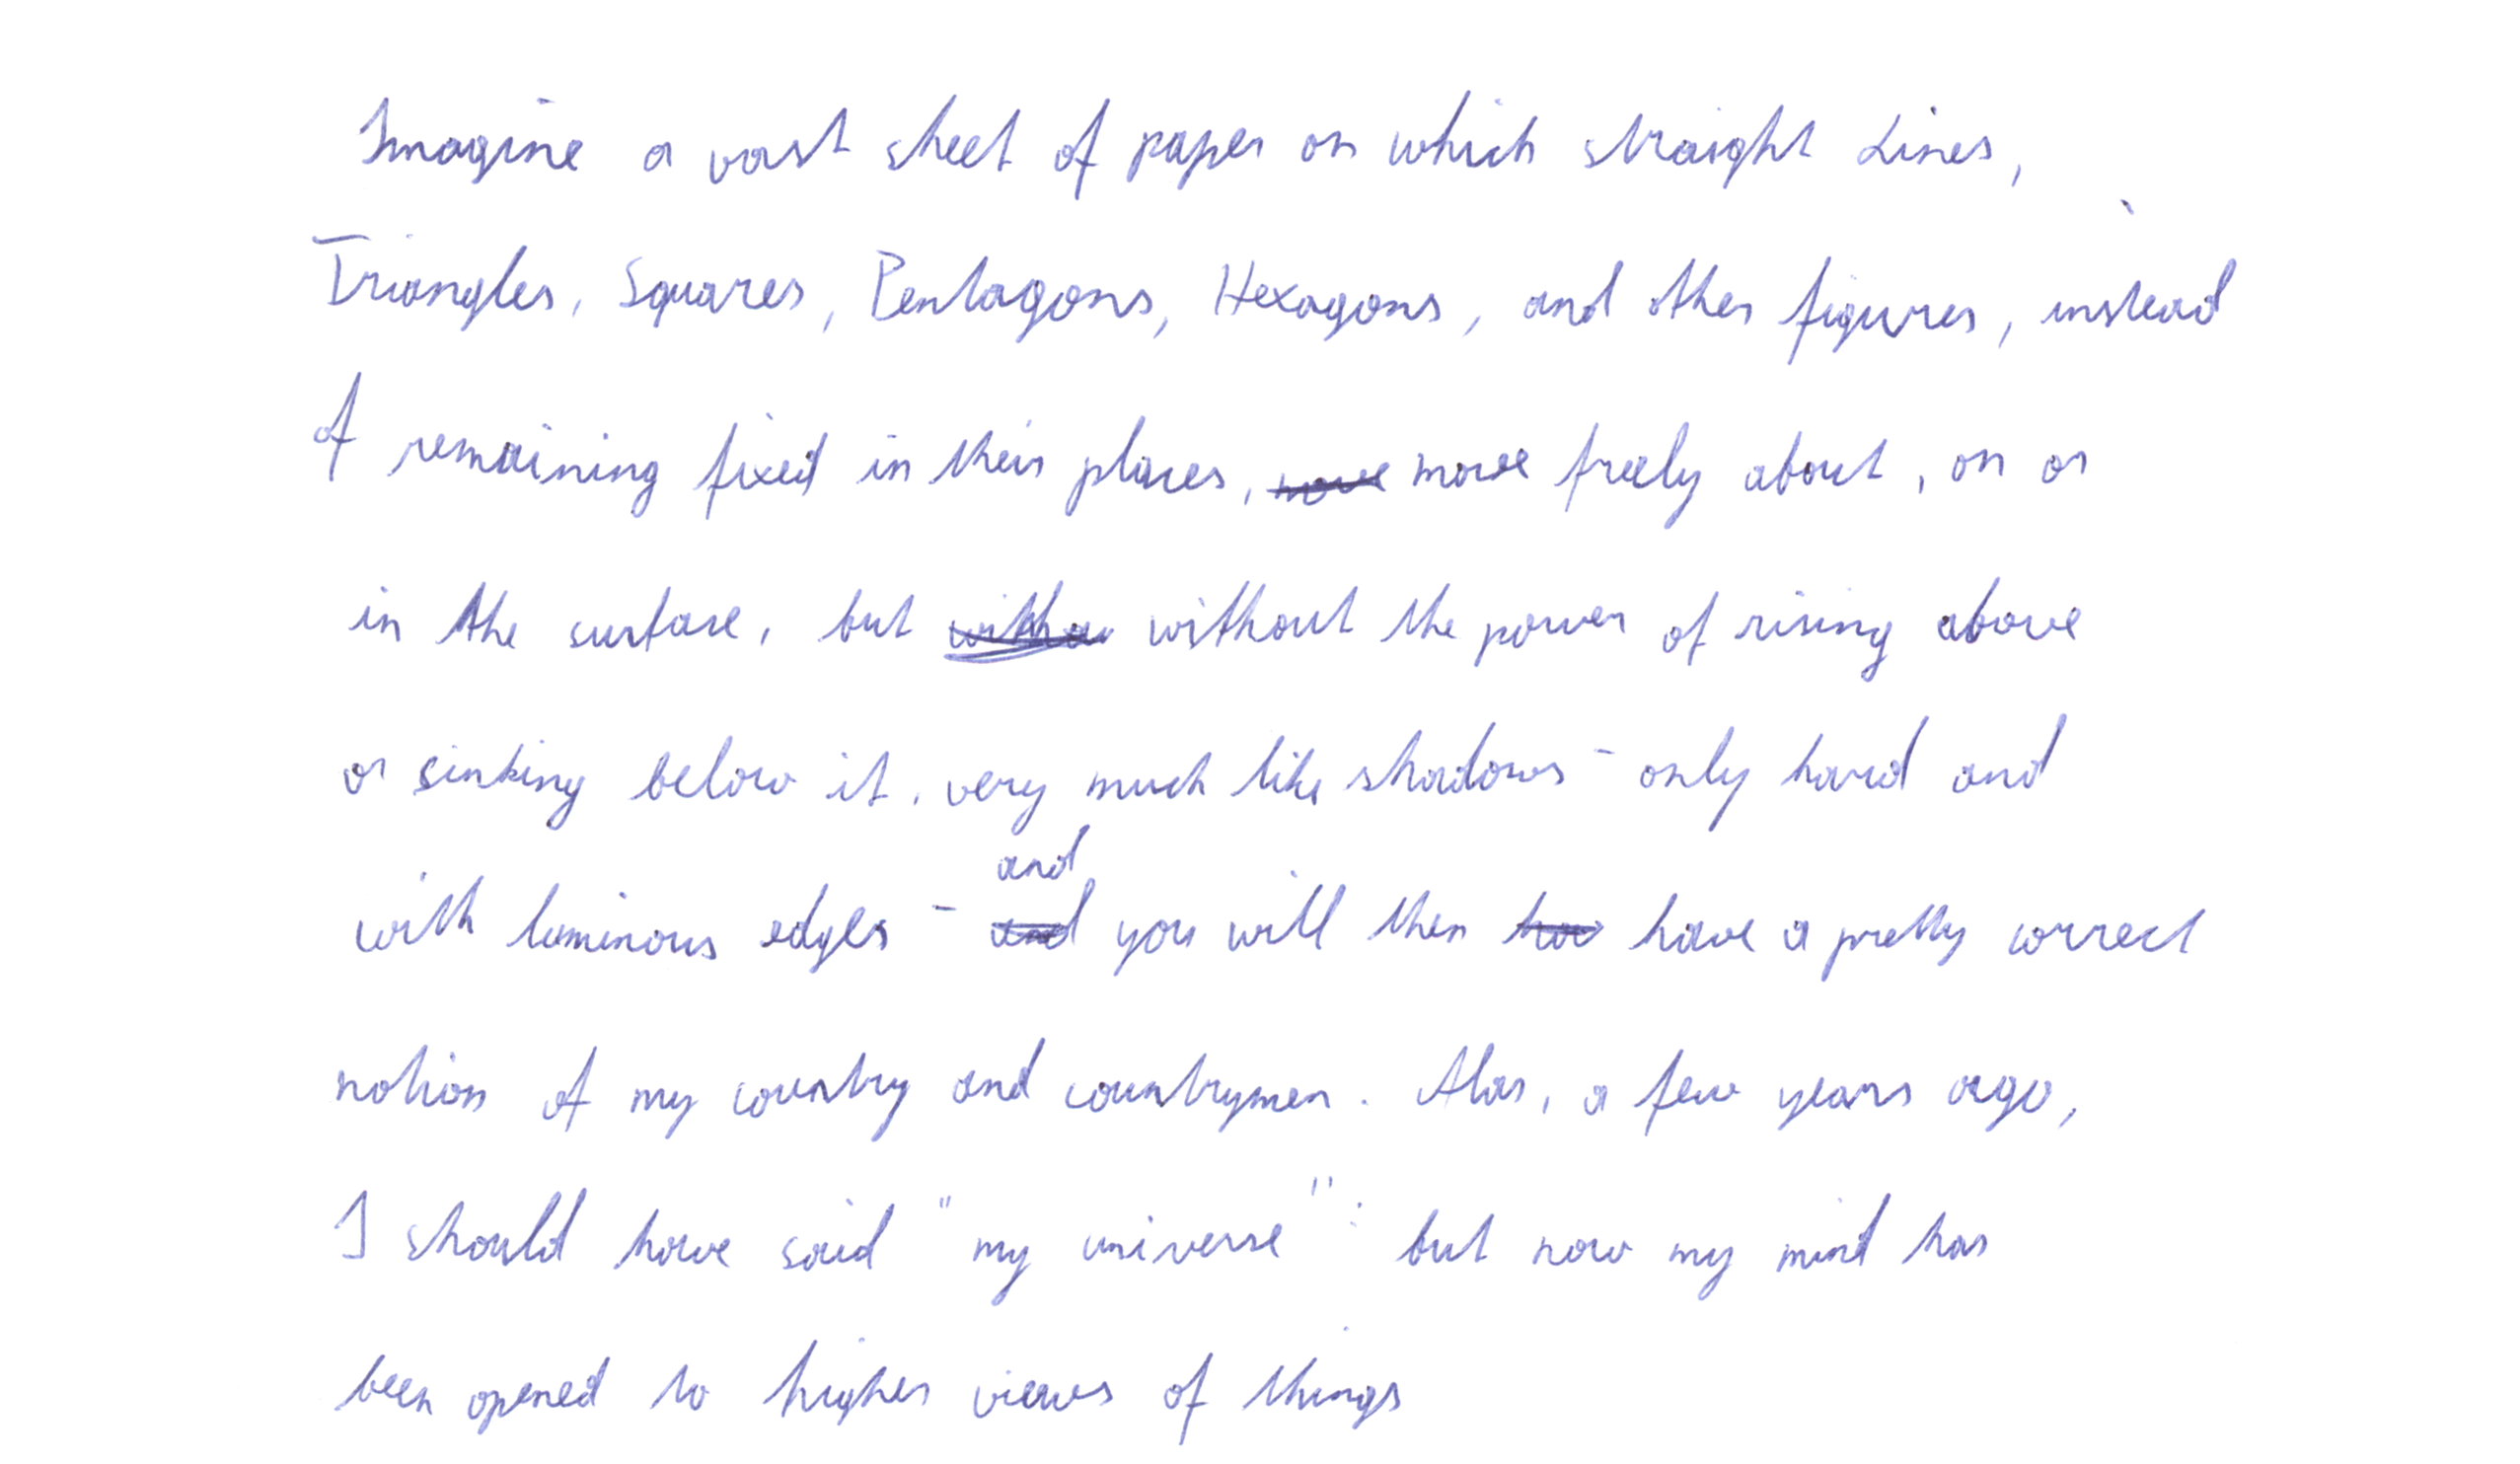 Imagine a vast sheet of paper on which straight Lines,
Triangles, Squares, Pentagons, Hexagons, and other figures, instead
of remaining fixed in their places, move move freely about, on or
in the surface, but withou without the power of rising above
or sinking below it, very much like shadows - only hard and
and
with luminous edges - and you will then hav have a pretty correct
notion of my country and countrymen. Alas, a few years ago,
I should have said "my universe": but now my mind has
been opened to higher views of things